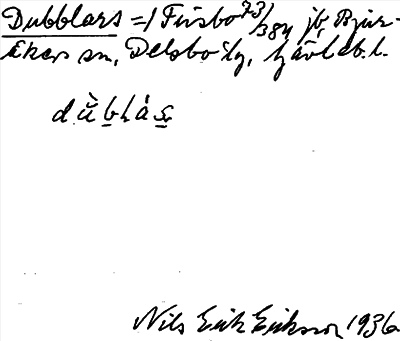 Dubblars =/ Fursbo 7³/384 jb, Bjur-
åkers sn, Delsbo tg, Gävleb. l.
dùbḷàṣ
Nils Erik Eriksson 1936